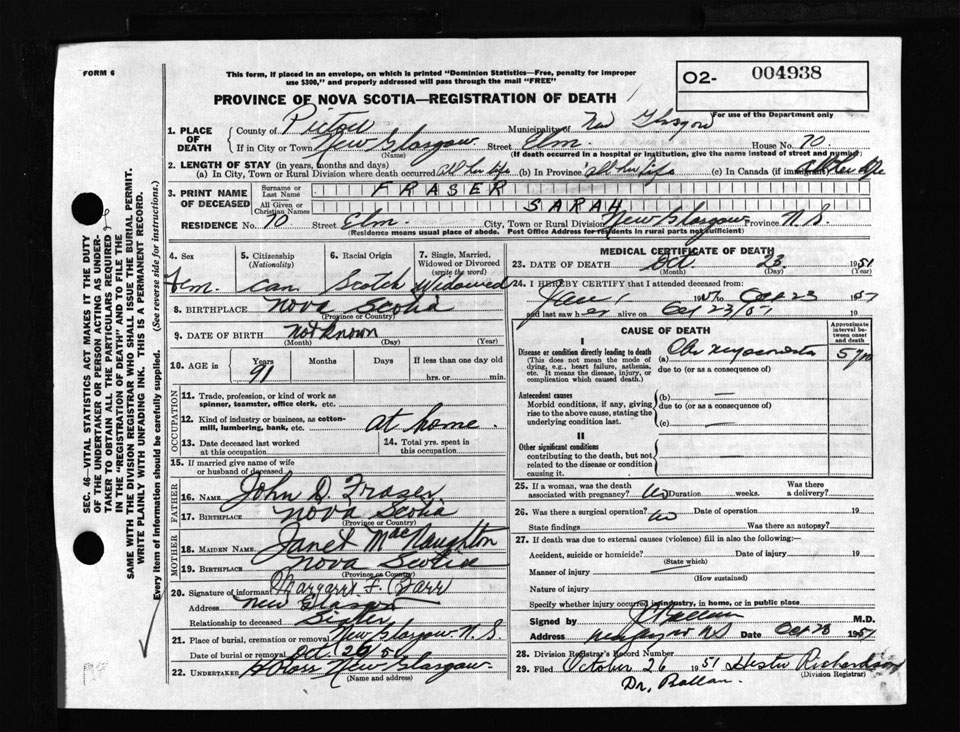 FORM 6
This form, if placed in an envelope, on which is printed "Dominion Statistics—Free, penalty for improper
use $300," and properly addressed will pass through the mail "FREE"
O2- 004938
For use of the Department only
PROVINCE OF NOVA SCOTIA—REGISTRATION OF DEATH
1. PLACE OF DEATH
County of Pictou Municipality of New Glasgow
If in City or Town New Glasgow Street Elm House No. 70
(Name) (If death occurred in a hospital or institution, give its name instead of street and number)
2. LENGTH OF STAY (in years, months and days)
(a) In City, Town or Rural Division where death occurred all her life (b) In Province all her life (c) In Canada (if immigrant) all her life
3. PRINT NAME OF DECEASED
Surname or Last Name FRASER
All Given or Christian Names SARAH
RESIDENCE No. 70 Street Elm City, Town or Rural Division New Glasgow Province N.S.
(Residence means usual place of abode. Post Office Address for residents in rural parts not sufficient)
4. Sex Fem.
5. Citizenship (Nationality) Can.
6. Racial Origin Scotch
7. Single, Married, Widowed or Divorced (write the word) Widowed
8. BIRTHPLACE Nova Scotia
(Province or Country)
9. DATE OF BIRTH Not Known
(Month) (Day) (Year)
10. AGE in Years 91 Months Days If less than one day old
hrs. or min.
OCCUPATION
11. Trade, profession, or kind of work as
spinner, teamster, office clerk, etc.
12. Kind of industry or business, as cotton-
mill, lumbering, bank, etc. at home.
13. Date deceased last worked
at this occupation
14. Total yrs. spent in
this occupation
15. If married give name of wife
or husband of deceased
FATHER
16. NAME John D. Fraser
17. BIRTHPLACE Nova Scotia
(Province or Country)
MOTHER
18. MAIDEN NAME Janet MacNaughton
19. BIRTHPLACE Nova Scotia
(Province or Country)
20. Signature of informant Margaret F.
Address New Glasgow
Relationship to deceased Sister
21. Place of burial, cremation or removal New Glasgow N.S
Date of burial or removal Oct 26 51
22. UNDERTAKER Ross New Glasgow
(Name and address)
MEDICAL CERTIFICATE OF DEATH
23. DATE OF DEATH Oct. 23 1951
(Month) (Day) (Year)
24. I HEREBY CERTIFY that I attended deceased from:
Jan 1 1951 to Oct 23 1951
and last saw her alive on Oct 23/51 19
CAUSE OF DEATH
Approximate interval between onset and death
I
Disease or condition directly leading to death (a)
(This does not mean the mode of
dying, e.g., heart failure, asthenia,
etc. It means the disease, injury, or
complication which caused death.)
due to (or as a consequence of)
Antecedent causes (b) —
Morbid conditions, if any, giving due to (or as a consequence of)
rise to the above cause, stating the
underlying condition last. (c) —
II
Other significant conditions
contributing to the death, but not
related to the disease or condition
causing it.
25. If a woman, was the death
associated with pregnancy? No Duration weeks. Was there
a delivery?
26. Was there a surgical operation? No Date of operation 19
State findings Was there an autopsy?
27. If death was due to external causes (violence) fill in also the following:—
Accident, suicide or homicide? Date of injury 19
(State which)
Manner of injury
(How sustained)
Nature of injury
Specify whether injury occurred in industry, in home, or in public place
Signed by M.D.
Address Date Oct 1951
28. Division Registrar's Record Number
29. Filed October 26 1951 Hester Richardson
(Division Registrar)
Dr. Ballan.
SEC. 46—VITAL STATISTICS ACT MAKES IT THE DUTY
OF THE UNDERTAKER OR PERSON ACTING AS UNDER-
TAKER TO OBTAIN ALL THE PARTICULARS REQUIRED
IN THE "REGISTRATION OF DEATH" AND TO FILE THE
SAME WITH THE DIVISION REGISTRAR WHO SHALL ISSUE THE BURIAL PERMIT.
WRITE PLAINLY WITH UNFADING INK. THIS IS A PERMANENT RECORD.
Every item of Information should be carefully supplied. (See reverse side for instructions.)